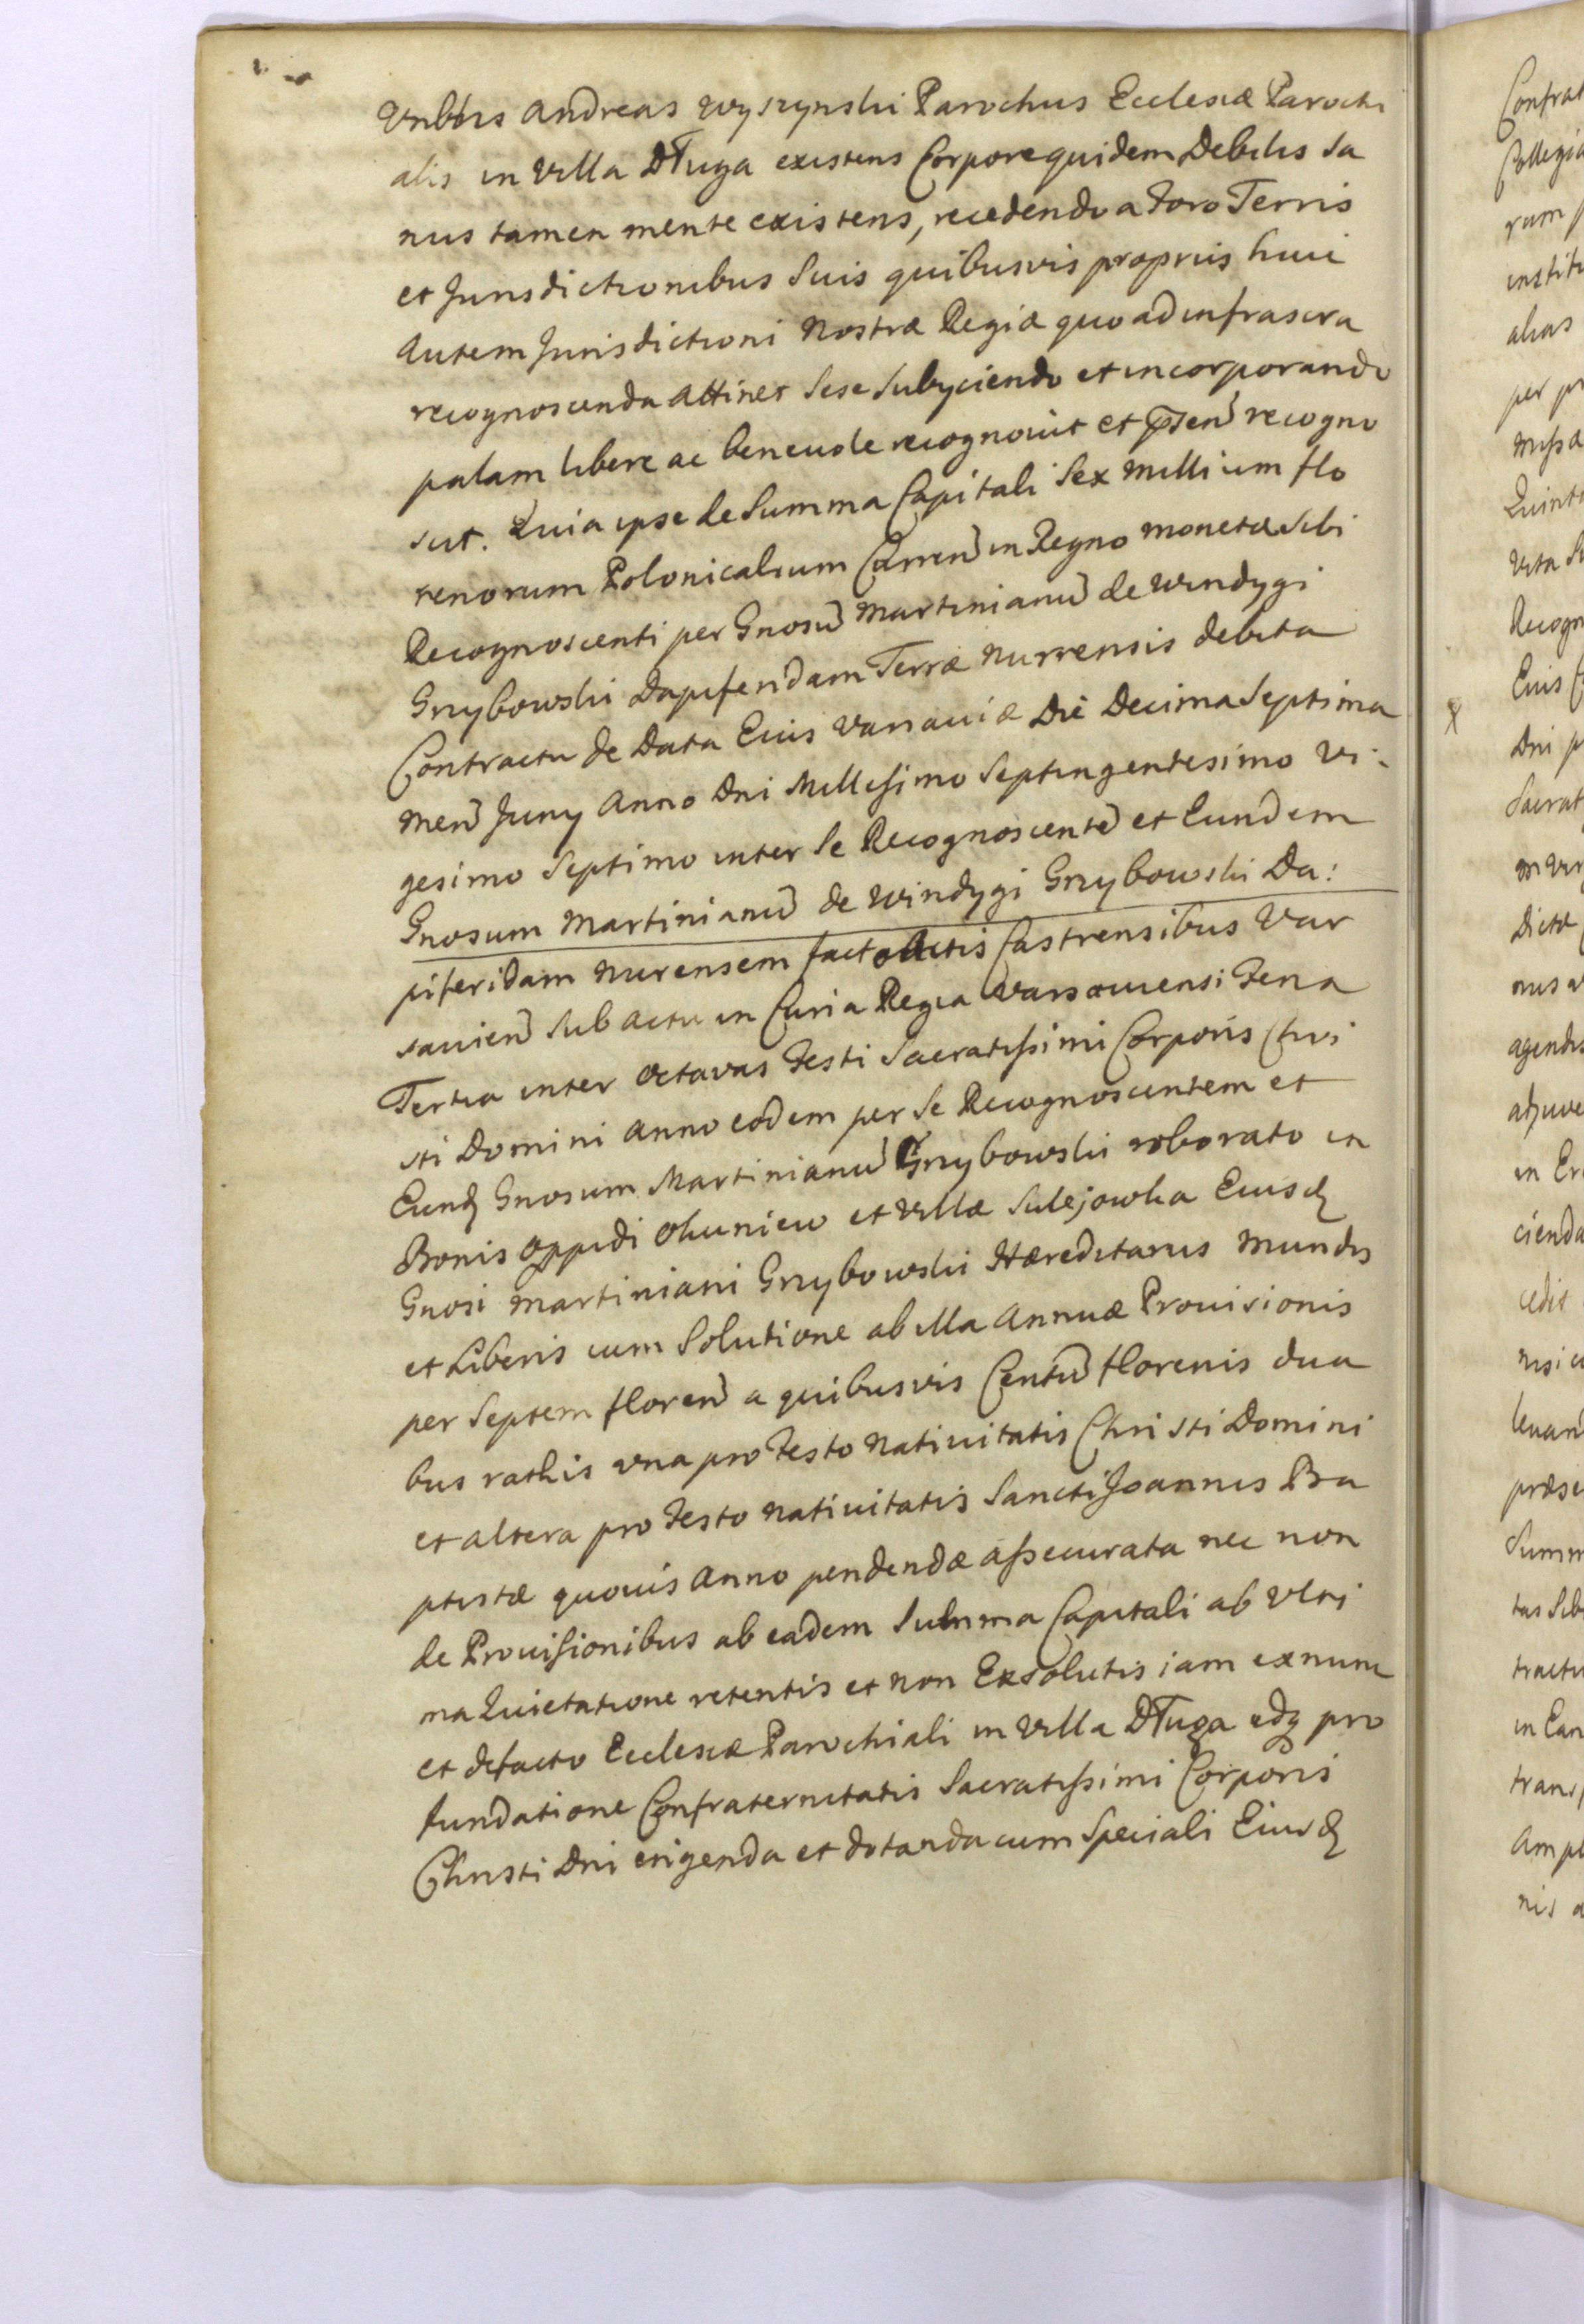 Vnbbis Andreas Wyszynski Parochus Ecclesiæ Parochi
alis in Villa Długa existens Corpore quidem Debilis Sa
nus tamen mente existens, recedendo a Foro Terris
et Jurisdictionibus Suis quibusvis proprijs huic
Autem Jurisdictioni Nostræ Regiæ quo ad infrascra
recognoscenda Attinet Sese Subyciendo et incorporando
palam libere ac beneuole recognouit et pñsen recogno
scit. Quia ipse de Summa Capitali Sex Millium flo
renorum Polonicalium Curren in Regno monetæ Sibi
Recognoscenti per Gnosu Martinianu de Windygi
Grzybowski Dapiferidam Terræ Nurrensis debita
Contractu de Data Eius Varsauiæ Die Decima Septima
Men Juny Anno Dni Millesimo Septingentesimo Vi-
gesimo Septimo inter Se Recognoscente et Eundem
Gnosum Martinianu de Windygi Grzybowski Da:
piferidam Nurensem facto Actis Castrensibus Var
sauien Sub Actu in Curia Regia Varsauiensi Feria
Tertia inter Octavas Festi Sacratissimi Corporis Chri
sti Domini Anno eodem per Se Recognoscentem et
Eund Gnosum Martinianu Grzybowski roborato in
Bonis Oppidi Okuniew et Villæ Sulejowka Eiusd
Gnosi Martiniani Grzybowski Hæreditarijs Mundis
et Liberis cum Solutione ab illa Annuæ Prouisionis
per Septem floren a quibusvis Centu florenis dua
bus rathis vna pro Festo Natiuitatis Christi Domini
et altera pro Festo Natiuitatis Sancti Joannis Ba
ptistæ quouis Anno pendendæ assecurata nec non
de Prouisionibus ab eadem Summa Capitali ab Vlti
ma Quietatione retentis et non Exsolutis iam exnunc
et defacto Ecclesiæ Parochiali in Villa Długa edq pro
fundatione Confraternitatis Sacratissimi Corporis
Christi Dni erigenda et dotanda cum Speciali Eiusd